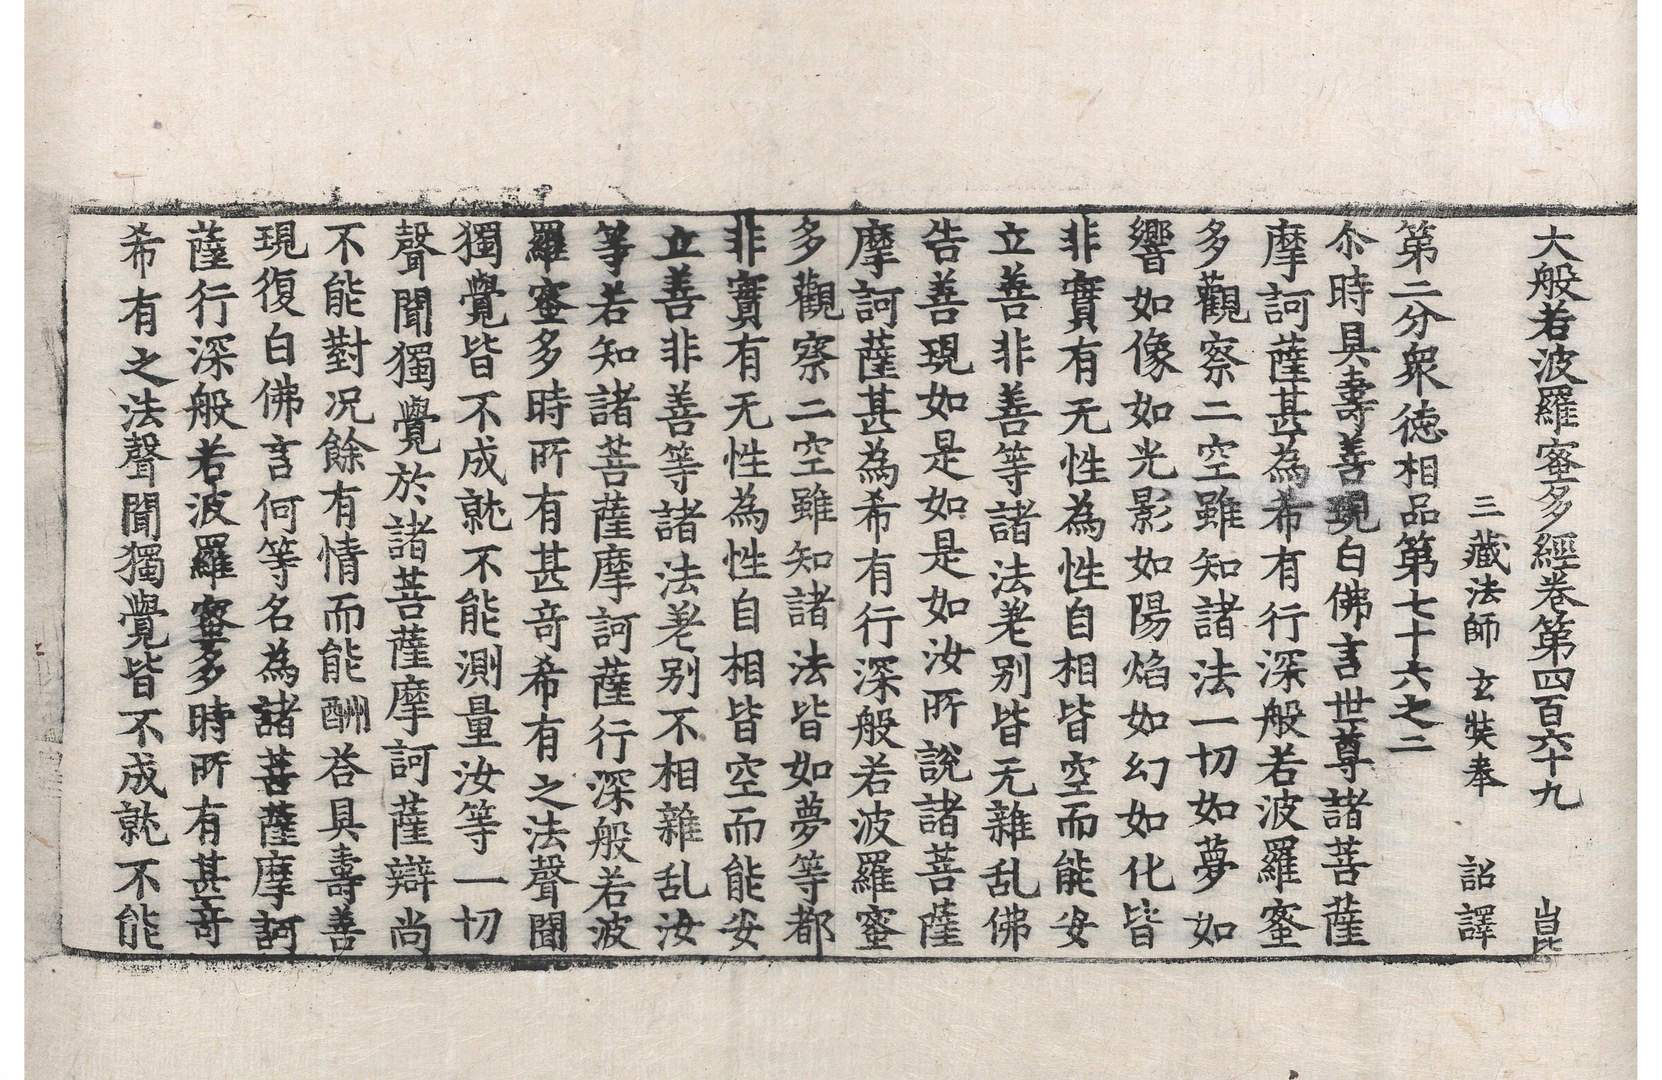 大般若波羅蜜多經卷第四百六十九 崑
三藏法師玄奘奉 詔譯
第二分衆徳相品第七十六之二
尒時具壽善現白佛言世尊諸菩薩
摩訶薩甚為希有行深般若波羅蜜
多觀察二空雖知諸法一切如夢如
響如像如光影如陽焰如幻如化皆
非實有无性為性自相皆空而能安
立善非善等諸法差别皆无雜乱佛
告善現如是如是如汝所說諸菩薩
摩訶薩甚為希有行深般若波羅蜜
多觀察二空雖知諸法皆如夢等都
非實有无性為性自相皆空而能安
立善非善等諸法差别不相雜乱汝
等若知諸菩薩摩訶薩行深般若波
羅蜜多時所有甚竒希有之法聲聞
獨覺皆不成就不能測量汝等一切
聲聞獨覺於諸菩薩摩訶薩辯尚
不能對况餘有情而能酬荅具壽善
現復白佛言何等名為諸菩薩摩訶
薩行深般若波羅蜜多時所有甚竒
希有之法聲聞獨覺皆不成就不能